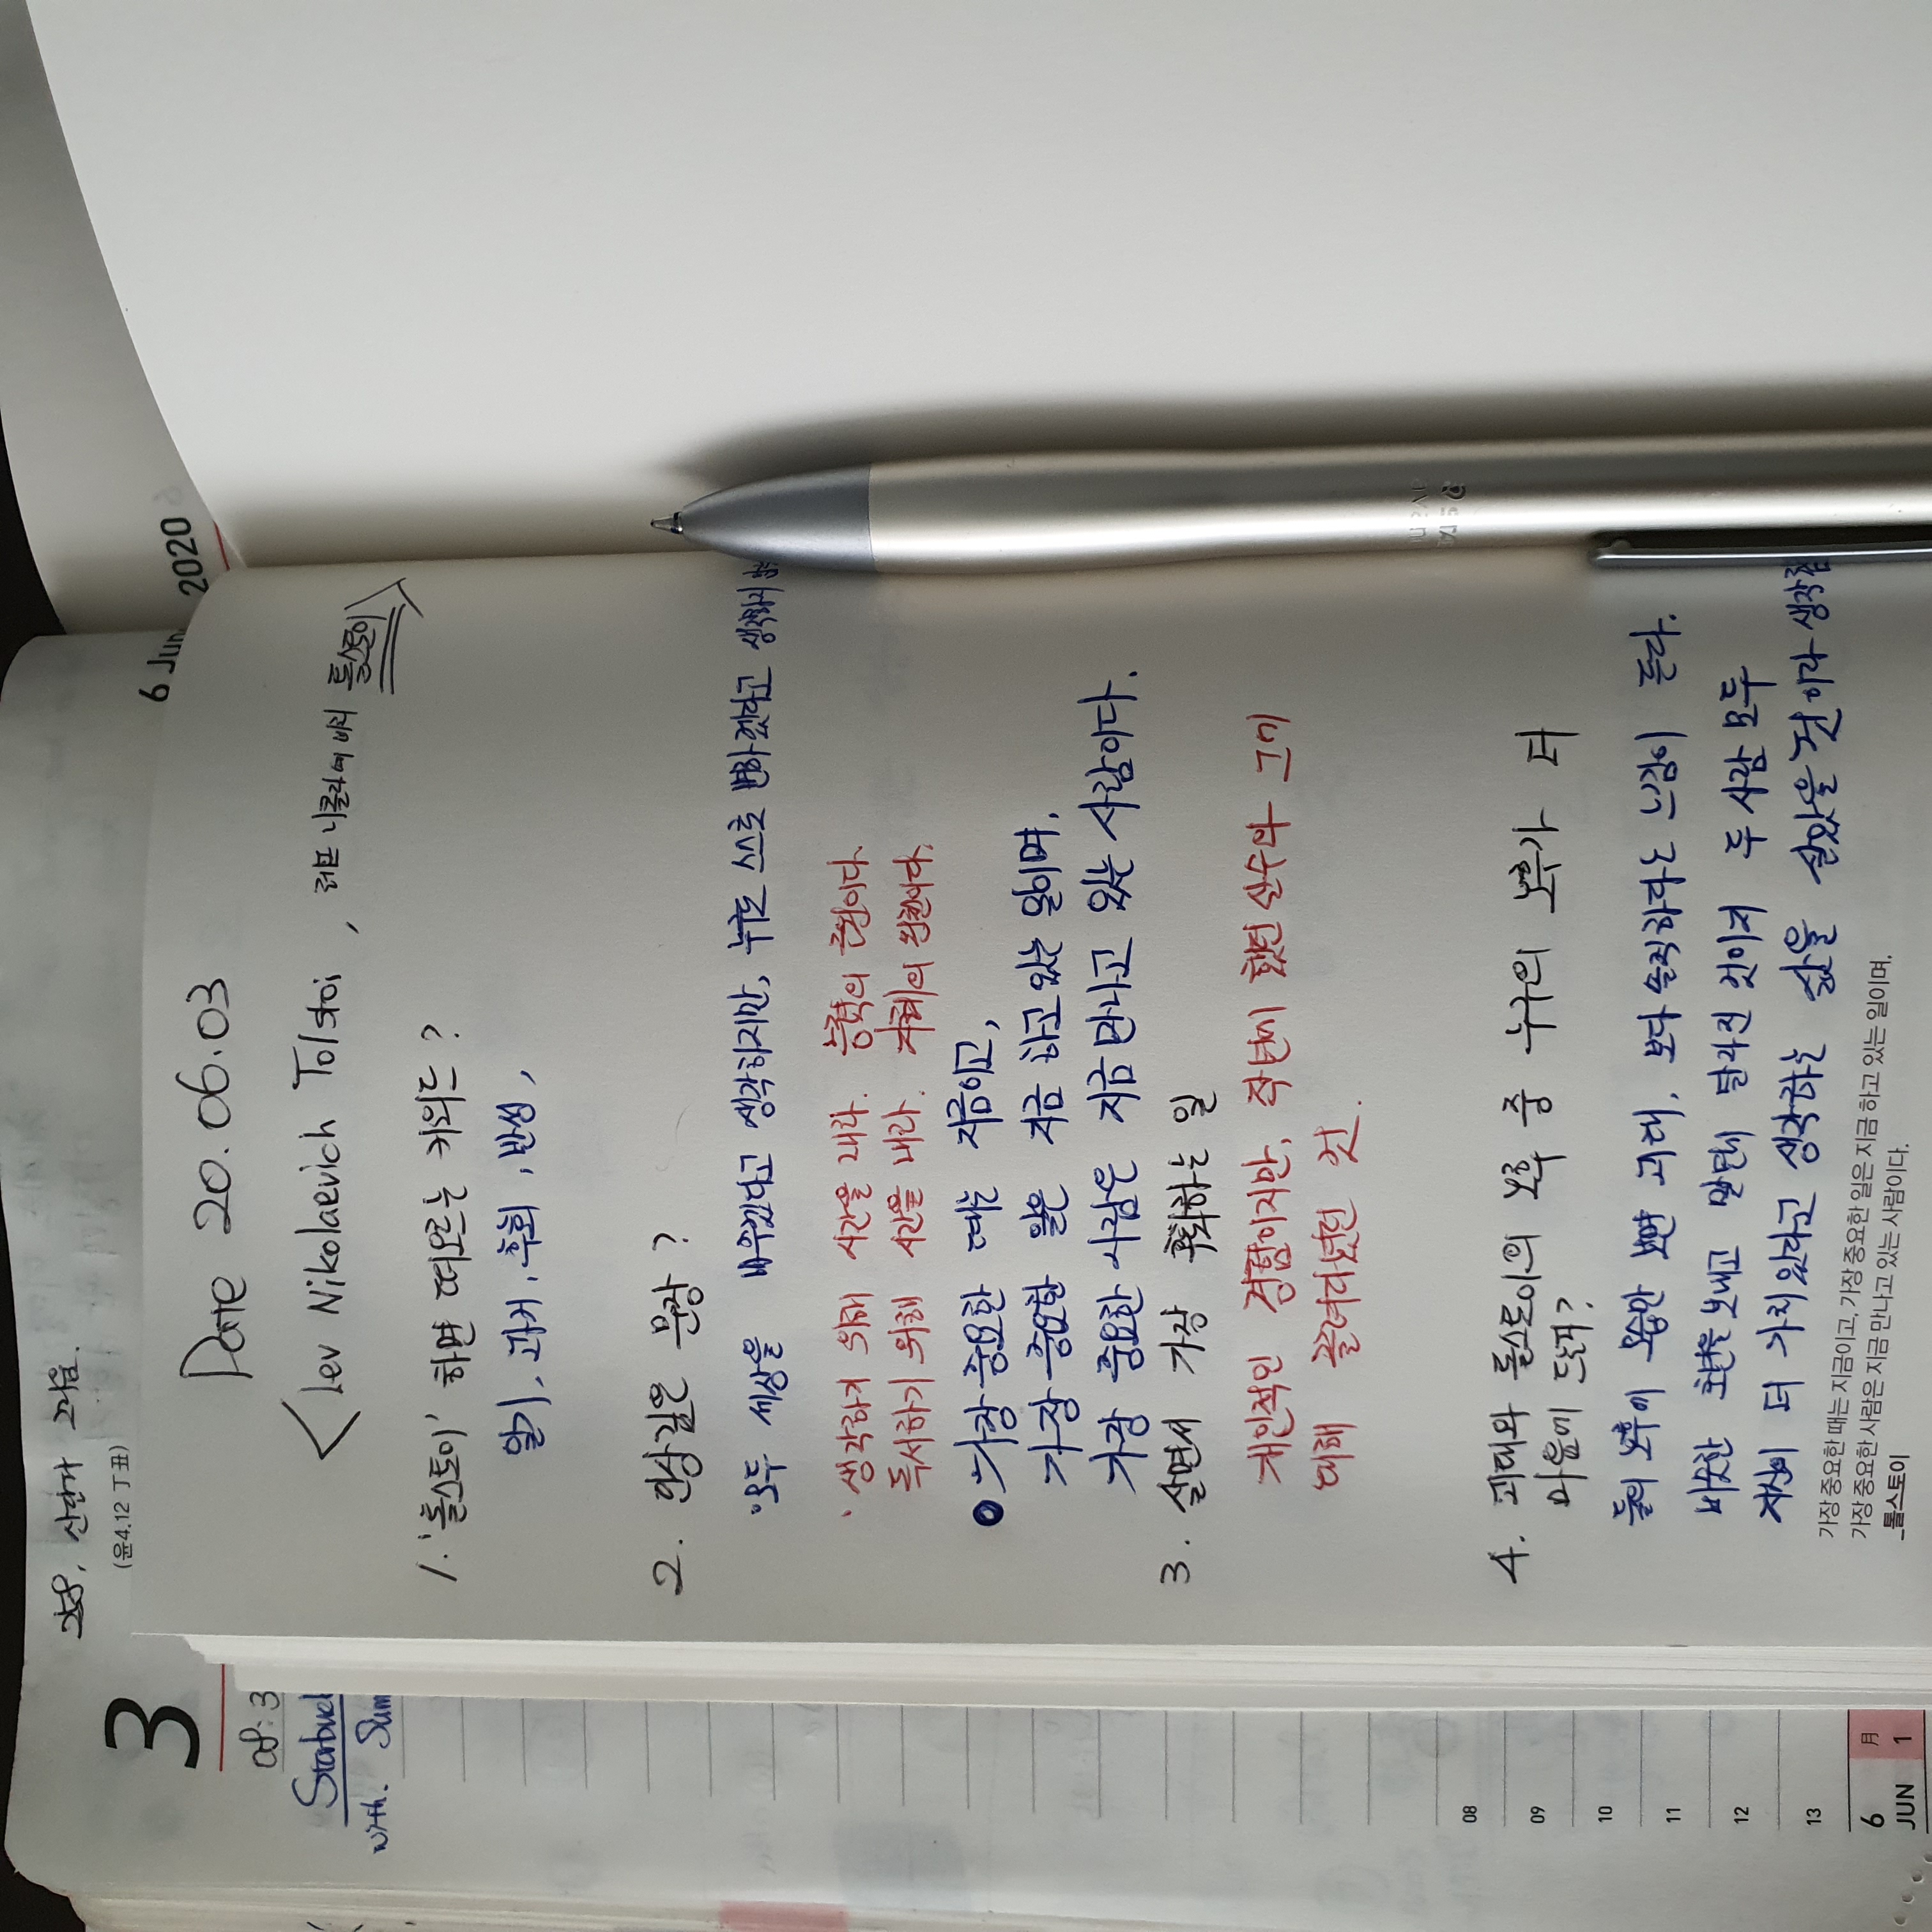 6 Jun 2020
산란가 괴음.
(윤4.12 丁丑)
3
08:3
Starbuck
with. Sum
Date 20.06.03
<lev Nikolaevich Tolstoi, 레프 니콜라예비치 톨스토이>
1. '톨스토이' 하면 떠오르는 키워드?
일기, 과거, 후회, 반성,
2. 인상깊은 문장?
'모두 세상을 바꾸겠다고 생각하지만, 누구도 스스로 변하겠다고 생각하지
' 생각하기 위해 시간을 내라. 능력의 근원이다.
독서하기 위해 시간을 내라. 지혜의 원천이다.
가장 중요한 때는 지금이고,
가장 중요한 일은 지금 하고 있는 일이며,
가장 중요한 사람은 지금 만나고 있는 사람이다.
3. 살면서 가장 후회하는 일
개인적인 경험이지만, 작년에 했던 실수와 그에
대해 끌려다녔던 것.
4. 괴테와 톨스토이의 노후 중 누구의 노후가 더
마음에 드는지?
둘의 노후의 모습만 보면 괴테, 보다 솔직하다는 느낌이 든다.
비슷한 초년을 보내고 말년에 달라진 것이지 두 사람 모두
자신이 더 가치있다고 생각하는 삶을 살았을 것이라 생각
가장 중요한 때는 지금이고, 가장 중요한 일은 지금 하고 있는 일이며,
가장 중요한 사람은 지금 만나고 있는 사람이다.
_톨스토이
08
09
10
11
12
13
6 月
JUN 1